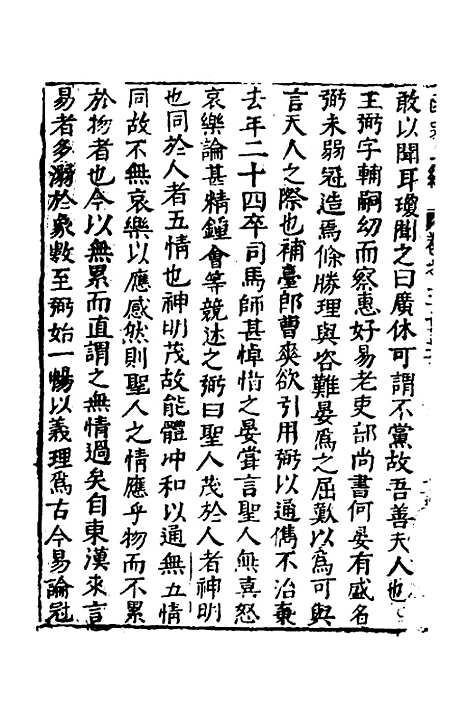 敢以聞耳瓊聞之曰廣休可謂不黨故吾善夫人也
王弼字輔嗣幼而察惠好易老吏部尚書何晏有盛名
弼未弱冠造焉條勝理與咨難晏爲之屈歎以爲可與
言天人之際也補臺郎曹爽欲引用弼以通儁不治棄
去年二十四卒司馬師甚悼惜之晏嘗言聖人無喜怒
哀樂論甚精鐘會等競述之弼曰聖人茂於人者神明
也同於人者五情也神明茂故能體冲和以通無五情
同故不無哀樂以應感然則聖人之情應乎物而不累
於物者也今以無累而直謂之無情過矣自東漢來言
易者多溺於象數至弼始一暢以義理爲古今易論冠